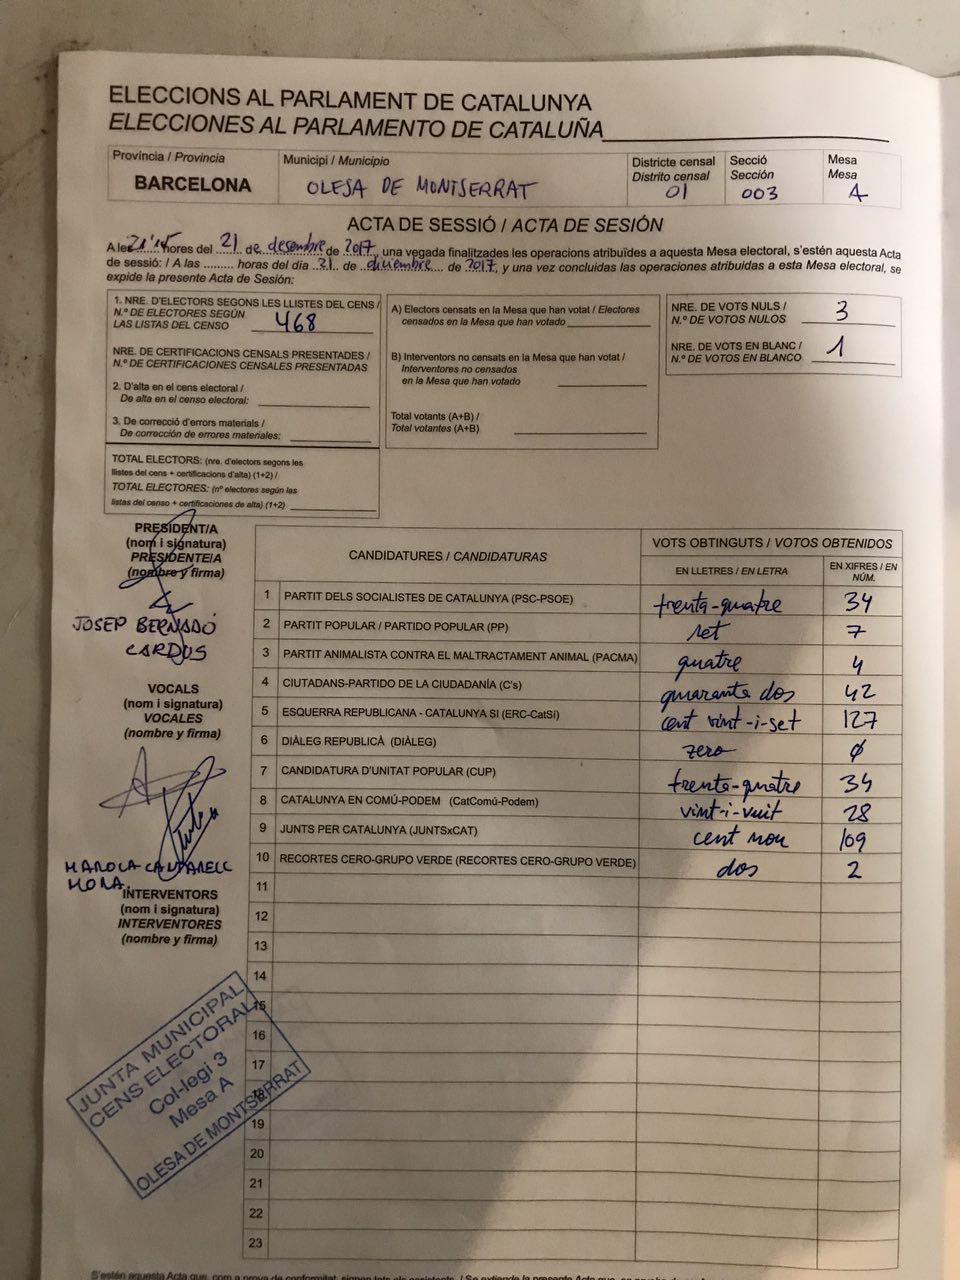 ELECCIONS AL PARLAMENT DE CATALUNYA
ELECCIONES AL PARLAMENTO DE CATALUÑA
Província / Provincia
BARCELONA
Municipi / Municipio
OLESA DE MONTSERRAT
Districte censal
Distrito censal
01
Secció
Sección
003
Mesa
Mesa
A
ACTA DE SESSIÓ / ACTA DE SESIÓN
A les 21'15 hores del 21 de desembre de 2017, una vegada finalitzades les operacions atribuïdes a aquesta Mesa electoral, s'estén aquesta Acta
de sessió: / A las ......... horas del día 21 de diciembre de 2017, y una vez concluidas las operaciones atribuidas a esta Mesa electoral, se
expide la presente Acta de Sesión:
1. NRE. D'ELECTORS SEGONS LES LLISTES DEL CENS /
N.º DE ELECTORES SEGÚN
LAS LISTAS DEL CENSO 468
NRE. DE CERTIFICACIONS CENSALS PRESENTADES /
N.º DE CERTIFICACIONES CENSALES PRESENTADAS
2. D'alta en el cens electoral /
De alta en el censo electoral:
3. De correcció d'errors materials /
De corrección de errores materiales:
TOTAL ELECTORS: (nre. d'electors segons les
llistes del cens + certificacions d'alta) (1+2) /
TOTAL ELECTORES: (nº electores según las
listas del censo + certificaciones de alta) (1+2)
A) Electors censats en la Mesa que han votat / Electores
censados en la Mesa que han votado
B) Interventors no censats en la Mesa que han votat /
Interventores no censados
en la Mesa que han votado
Total votants (A+B) /
Total votantes (A+B)
NRE. DE VOTS NULS /
N.º DE VOTOS NULOS 3
NRE. DE VOTS EN BLANC /
N.º DE VOTOS EN BLANCO 1
PRESIDENT/A
(nom i signatura)
PRESIDENTE/A
(nombre y firma)
JOSEP BERNADÓ
CARDÚS
VOCALS
(nom i signatura)
VOCALES
(nombre y firma)
MORA
INTERVENTORS
(nom i signatura)
INTERVENTORES
(nombre y firma)
CANDIDATURES / CANDIDATURAS
VOTS OBTINGUTS / VOTOS OBTENIDOS
EN LLETRES / EN LETRA
EN XIFRES / EN
NÚM.
1 PARTIT DELS SOCIALISTES DE CATALUNYA (PSC-PSOE) trenta-quatre 34
2 PARTIT POPULAR / PARTIDO POPULAR (PP) set 7
3 PARTIT ANIMALISTA CONTRA EL MALTRACTAMENT ANIMAL (PACMA) quatre 4
4 CIUTADANS-PARTIDO DE LA CIUDADANÍA (C's) quaranta dos 42
5 ESQUERRA REPUBLICANA - CATALUNYA SI (ERC-CatSí) cent vint-i-set 127
6 DIÀLEG REPUBLICÀ (DIÀLEG) zero 0
7 CANDIDATURA D'UNITAT POPULAR (CUP) trenta-quatre 34
8 CATALUNYA EN COMÚ-PODEM (CatComú-Podem) vint-i-vuit 28
9 JUNTS PER CATALUNYA (JUNTSxCAT) cent nou 109
10 RECORTES CERO-GRUPO VERDE (RECORTES CERO-GRUPO VERDE) dos 2
11
12
13
14
15
16
17
18
19
20
21
22
23
JUNTA MUNICIPAL
CENS ELECTORAL
Col·legi 3
Mesa A
OLESA DE MONTSERRAT